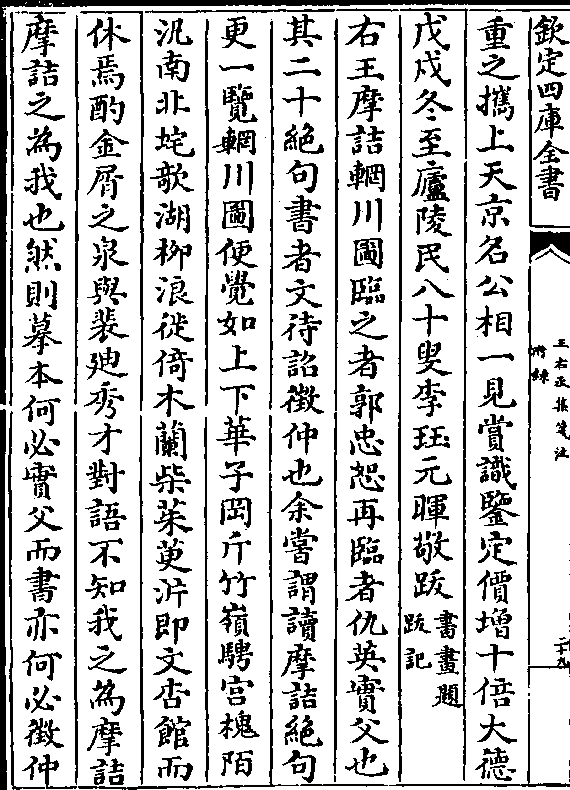 欽定四庫全書
王右丞集箋注
附錄
二十九
重之攜上天京名公相一見賞識鑒定價增十倍大德
戊戍冬至廬陵民八十叟李珏元暉敬跋書畫題
跋記
右王摩詰輞川圖臨之者郭忠恕再臨者仇英實父也
其二十絶句書者文待詔徴仲也余嘗謂讀摩詰絶句
更一覽輞川圖便覺如上下華子岡斤竹嶺騁宫槐陌
汎南北垞欹湖栁浪從倚木蘭柴茱萸沜即文杏館而
休焉酌金屑之泉與裴廸秀才對語不知我之為摩詰
摩詰之為我也然則摹本何必實父而書亦何必徴仲